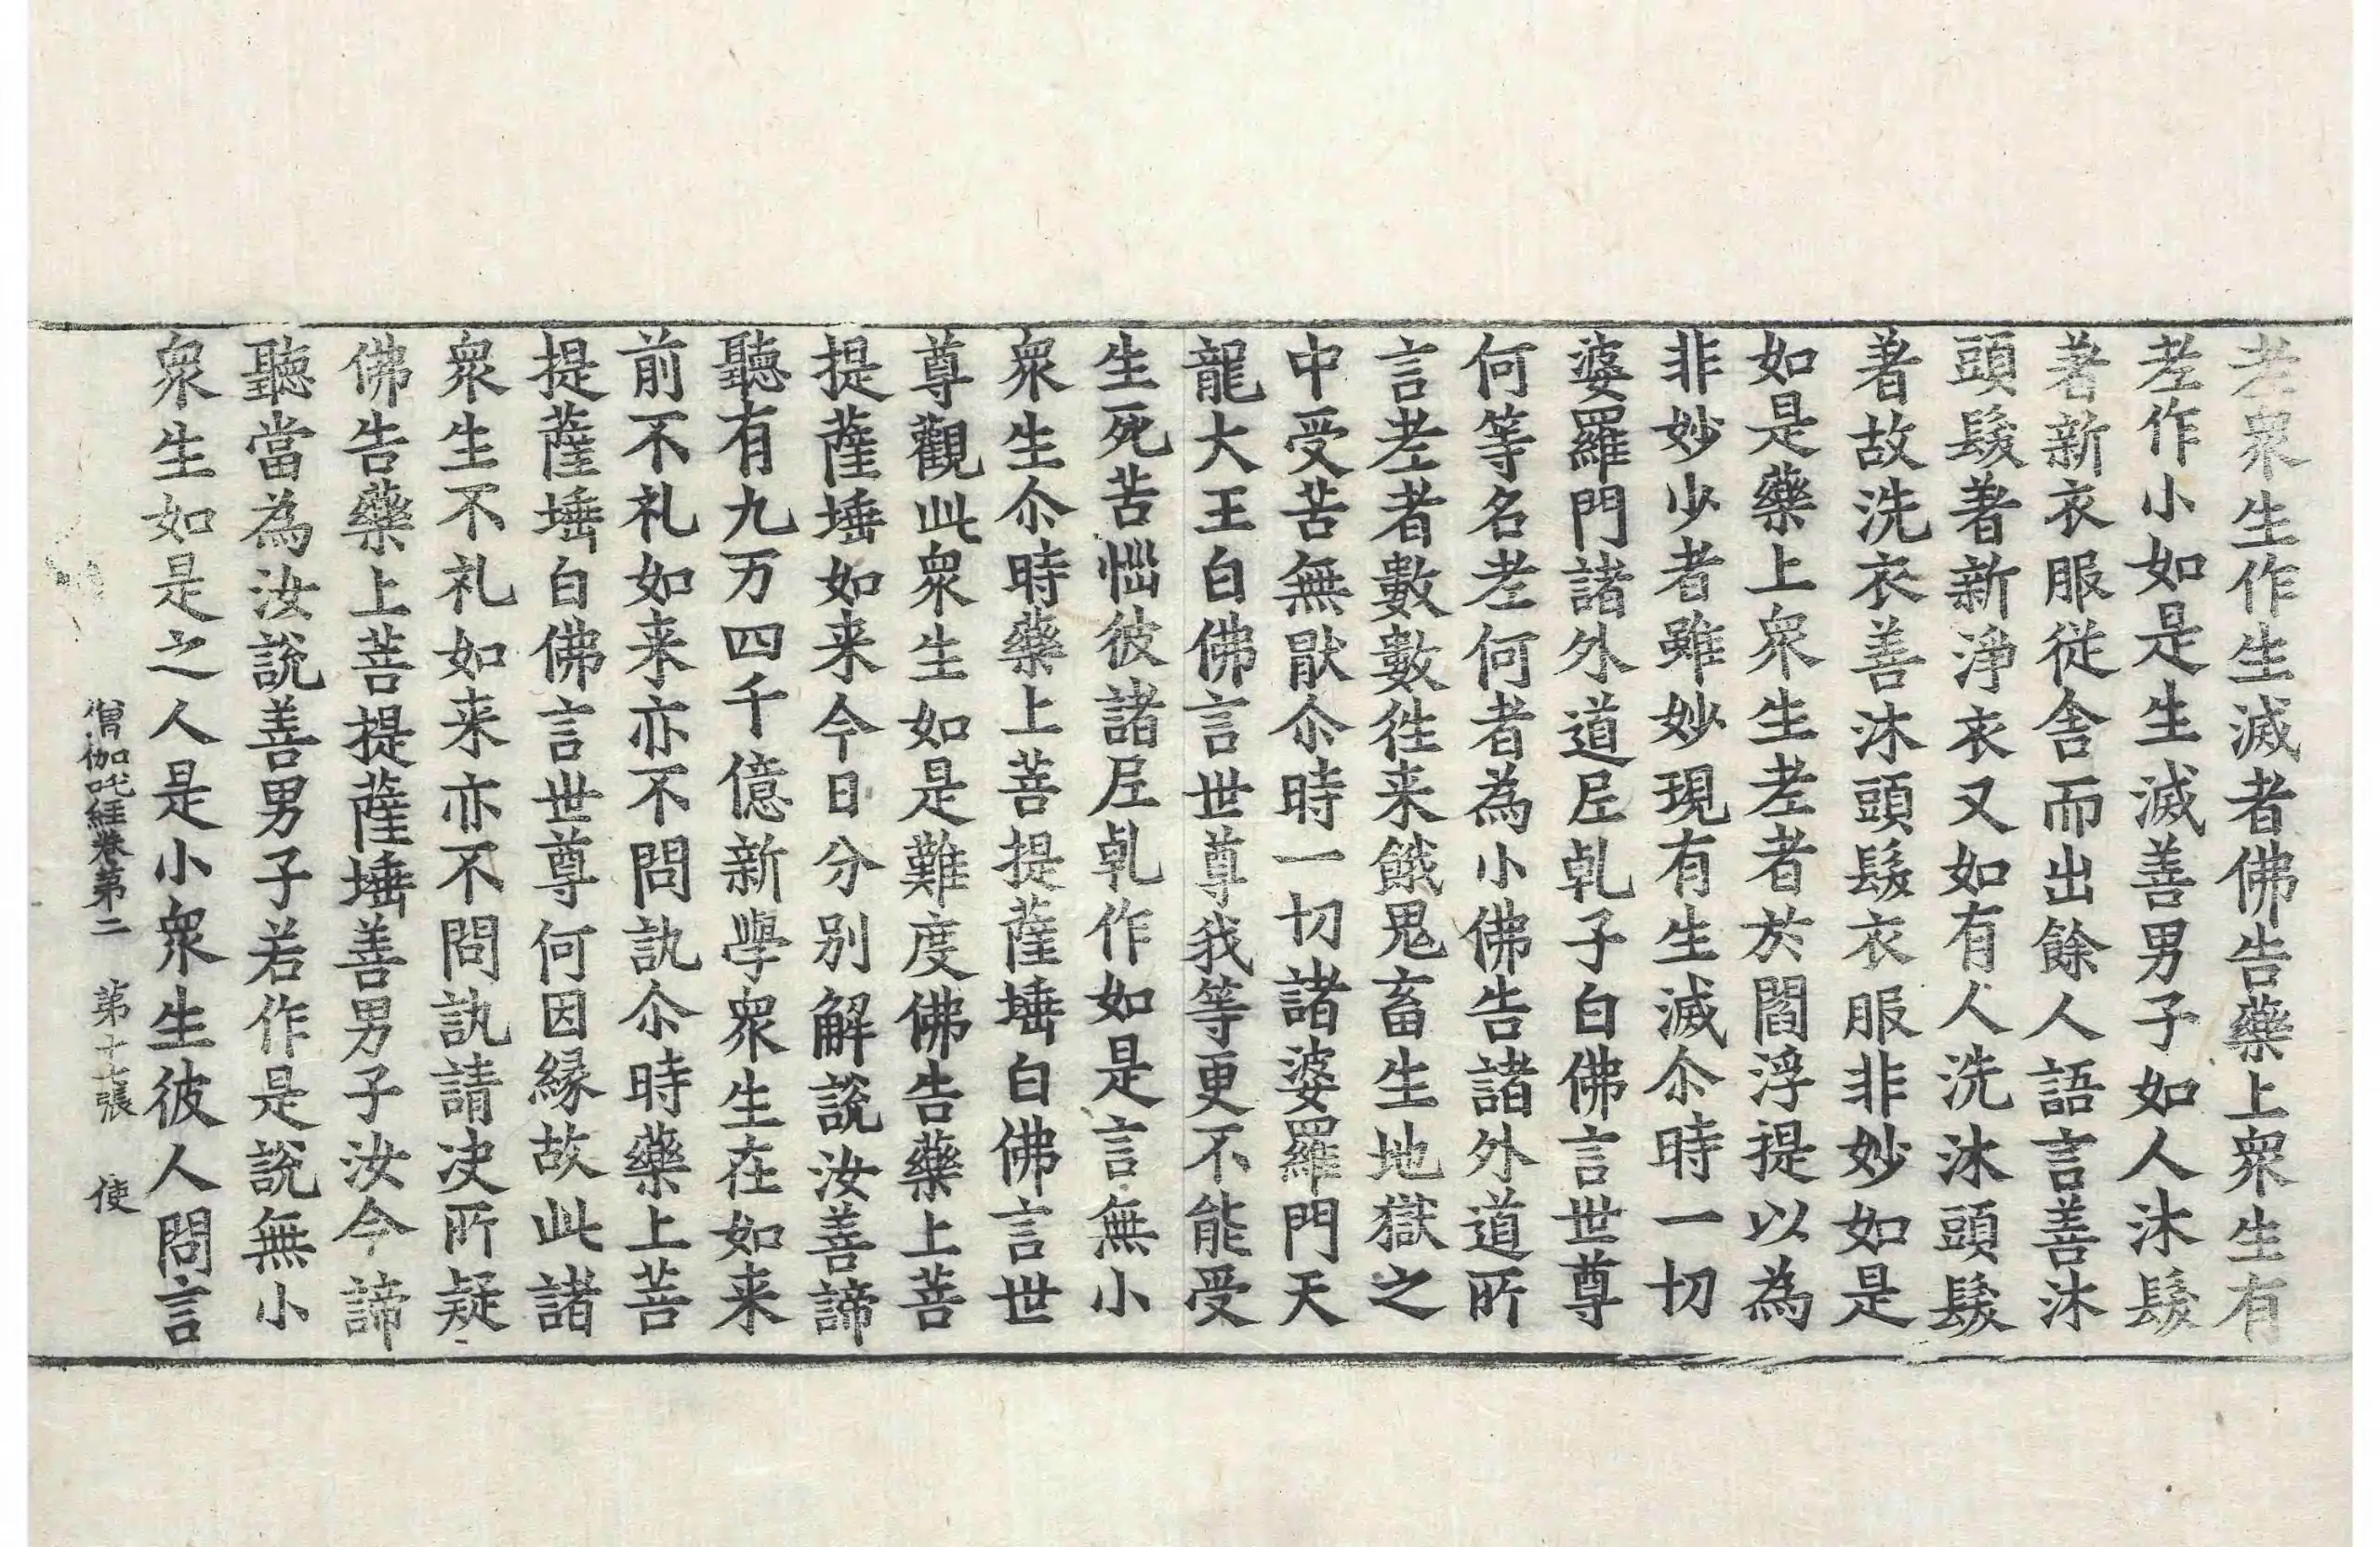 老衆生作生滅者佛告藥上衆生有
老作小如是生滅善男子如人沐髮
著新衣服從舍而出餘人語言善沐
頭髮著新淨衣又如有人洗沐頭髮
著故洗衣善沐頭髮衣服非妙如是
如是藥上衆生老者於閻浮提以為
非妙少者雖妙現有生滅尒時一切
婆羅門諸外道𡰱乹子白佛言世尊
何等名老何者為小佛告諸外道所
言老者數數徃来餓鬼畜生地獄之
中受苦無猒尒時一切諸婆羅門天
龍大王白佛言世尊我等更不能受
生死苦惱彼諸𡰱乹作如是言無小
衆生尒時藥上菩提薩埵白佛言世
尊觀此衆生如是難度佛告藥上菩
提薩埵如来今日分別解說汝善諦
聽有九万四千億新學衆生在如来
前不礼如来亦不問訊尒時藥上菩
提薩埵白佛言世尊何因縁故此諸
衆生不礼如来亦不問訊請决所疑
佛告藥上菩提薩埵善男子汝今諦
聽當為汝說善男子若作是說無小
衆生如是之人是小衆生彼人問言
僧伽吒經卷第二　第十七張　使